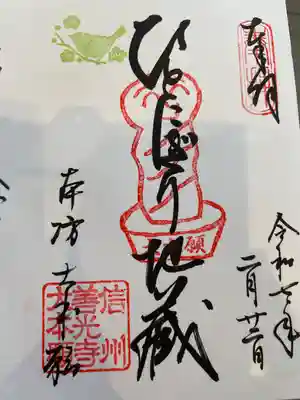 奉拝
令和七年
二月廿二日
ひとにぎり地蔵
願
本坊 大本願
信州
善光寺
大本願